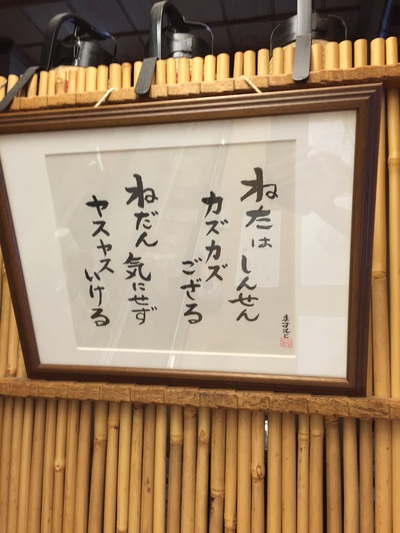 ねたはしんせん
カズカズ
ござる
ねだん気にせず
ヤスヤス
いける